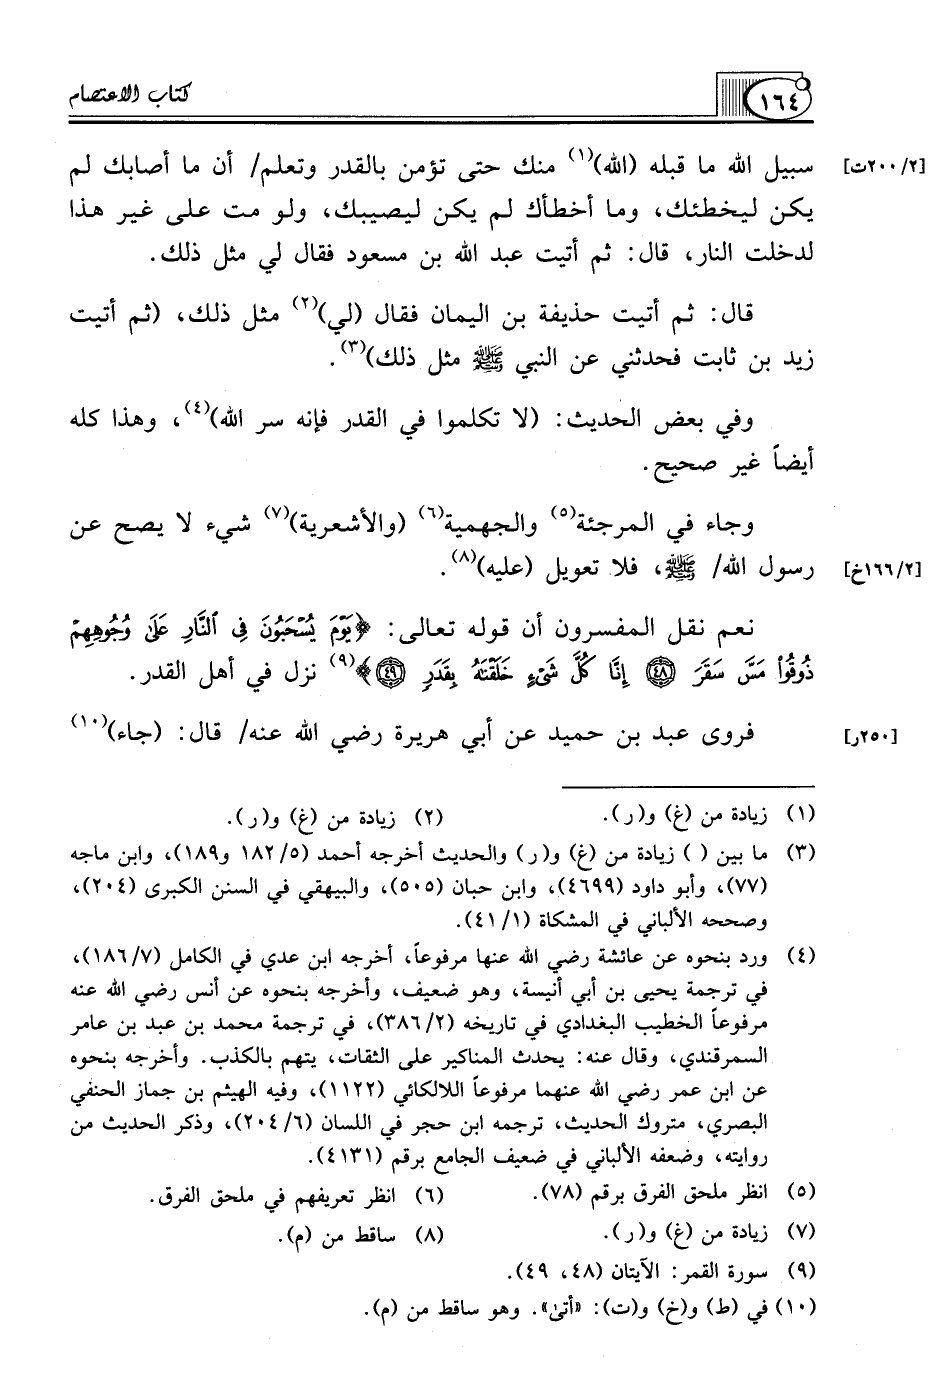 ١٦٤ كتاب الاعتصام
[٢/٢٠٠ت] سبيل الله ما قبله (الله)(١) منك حتى تؤمن بالقدر وتعلم/ أن ما أصابك لم
يكن ليخطئك، وما أخطأك لم يكن ليصيبك، ولو مت على غير هذا
لدخلت النار، قال: ثم أتيت عبد الله بن مسعود فقال لي مثل ذلك.
قال: ثم أتيت حذيفة بن اليمان فقال (لي)(٢) مثل ذلك، (ثم أتيت
زيد بن ثابت فحدثني عن النبي ﷺ مثل ذلك)(٣).
وفي بعض الحديث: (لا تكلموا في القدر فإنه سر الله)(٤)، وهذا كله
أيضاً غير صحيح.
وجاء في المرجئة(٥) والجهمية(٦) (والأشعرية)(٧) شيء لا يصح عن
[٢/١٦٦خ] رسول الله/ ﷺ، فلا تعويل (عليه)(٨).
نعم نقل المفسرون أن قوله تعالى: ﴿يَوْمَ يُسْحَبُونَ فِي ٱلنَّارِ عَلَىٰ وُجُوهِهِمْ
ذُوقُوا۟ مَسَّ سَقَرَ ٤٨ إِنَّا كُلَّ شَىْءٍ خَلَقْنَٰهُ بِقَدَرٍ ٤٩﴾(٩) نزل في أهل القدر.
[٢٥٠ر] فروى عبد بن حميد عن أبي هريرة رضي الله عنه/ قال: (جاء)(١٠)
(١) زيادة من (غ) و(ر). (٢) زيادة من (غ) و(ر).
(٣) ما بين ( ) زيادة من (غ) و(ر) والحديث أخرجه أحمد (٥/١٨٢ و١٨٩)، وابن ماجه
(٧٧)، وأبو داود (٤٦٩٩)، وابن حبان (٥٠٥)، والبيهقي في السنن الكبرى (٢٠٤)،
وصححه الألباني في المشكاة (١/٤١).
(٤) ورد بنحوه عن عائشة رضي الله عنها مرفوعاً، أخرجه ابن عدي في الكامل (٧/١٨٦)،
في ترجمة يحيى بن أبي أنيسة، وهو ضعيف، وأخرجه بنحوه عن أنس رضي الله عنه
مرفوعاً الخطيب البغدادي في تاريخه (٢/٣٨٦)، في ترجمة محمد بن عبد بن عامر
السمرقندي، وقال عنه: يحدث المناكير على الثقات، يتهم بالكذب. وأخرجه بنحوه
عن ابن عمر رضي الله عنهما مرفوعاً اللالكائي (١١٢٢)، وفيه الهيثم بن جماز الحنفي
البصري، متروك الحديث، ترجمه ابن حجر في اللسان (٦/٢٠٤)، وذكر الحديث من
روايته، وضعفه الألباني في ضعيف الجامع برقم (٤١٣١).
(٥) انظر ملحق الفرق برقم (٧٨). (٦) انظر تعريفهم في ملحق الفرق.
(٧) زيادة من (غ) و(ر). (٨) ساقط من (م).
(٩) سورة القمر: الآيتان (٤٨، ٤٩).
(١٠) في (ط) و(خ) و(ت): «أتىٰ». وهو ساقط من (م).